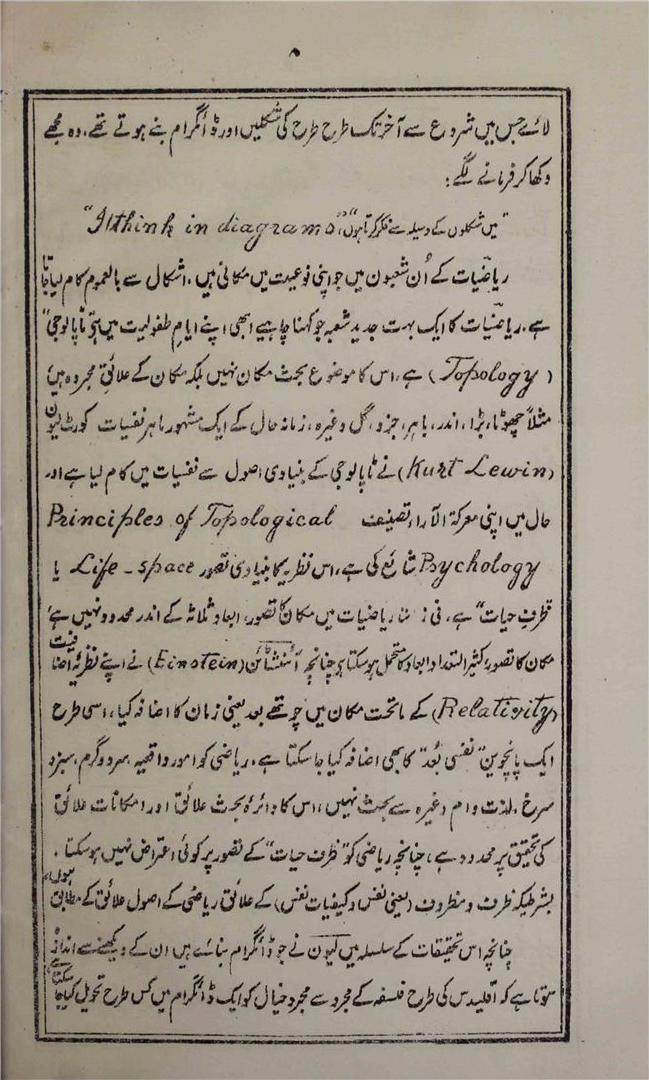 ۸
لائے جس میں شروع سے آخر تک طرح طرح کی شکلیں اور ڈائگرام بنے ہوتے تھے. وہ مجھے
دکھا کر فرمانے لگے:
"میں شکلوں کے وسیلہ سے فکر کرتا ہوں" "I think in diagrams"
ریاضیات کے اُن شعبون میں جو اپنی نوعیت میں مکانی ہیں، اشکال سے بالعموم کام لیا جاتا
ہے. ریاضیات کا ایک بہت جدید شعبہ جو کہنا چاہیے ابھی اپنے ایام طفولیت میں ہے "ٹاپالوجی"
(Topology) ہے، اس کا موضوع بحث مکان نہیں بلکہ مکان کے علائق مجردہ ہیں
مثلاً چھوٹا، بڑا، اندر، باہر، جزو، کل وغیرہ، زمانہ حال کے ایک مشہور ماہر نفسیات کورٹ لیون
(Kurt Lewin) نے ٹاپالوجی کے بنیادی اصول سے نفسیات میں کام لیا ہے اور
حال میں اپنی معرکۃ الآراء تصنیف Principles of Topological
Psychology شائع کی ہے، اس نظریہ کا بنیادی تصور Life-space یا
ظرف حیات" ہے، فی زماننا ریاضیات میں مکان کا تصور، ابعاد ثلاثہ کے اندر محدود نہیں ہے
مکان کا تصور، کثیر التعداد ابعاد کا متحمل ہو سکتا ہے چنانچہ آئنشٹائن (Einstein) نے اپنے نظریۂ اضافیت
(Relativity) کے ماتحت مکان میں چوتھے بعد یعنی زمان کا اضافہ کیا، اسی طرح
ایک پانچوین "نفسی بُعد" کا بھی اضافہ کیا جا سکتا ہے. ریاضی کو امور واقعیہ، سرد و گرم، سبز و
سرخ، لذت و الم وغیرہ سے بحث نہیں، اس کا دائرہ بحث علائق اور امکانات علائق
کی تحقیق پر محدود ہے، چنانچہ ریاضی کو "ظرف حیات" کے تصور پر کوئی اعتراض نہیں ہو سکتا.
بشرطیکہ ظرف و مظروف (یعنی نفس و کیفیات نفس) کے علائق ریاضی کے اصول علائق کے مطابق ہوں،
چنانچہ اس تحقیقات کے سلسلہ میں لیون نے جو ڈائگرام بنائے ہیں ان کے دیکھنے سے اندازہ
ہوتا ہے کہ اقلیدس کی طرح فلسفہ کے مجرد سے مجرد خیال کو ایک ڈائگرام میں کس طرح تحویل کیا جا سکتا ہے